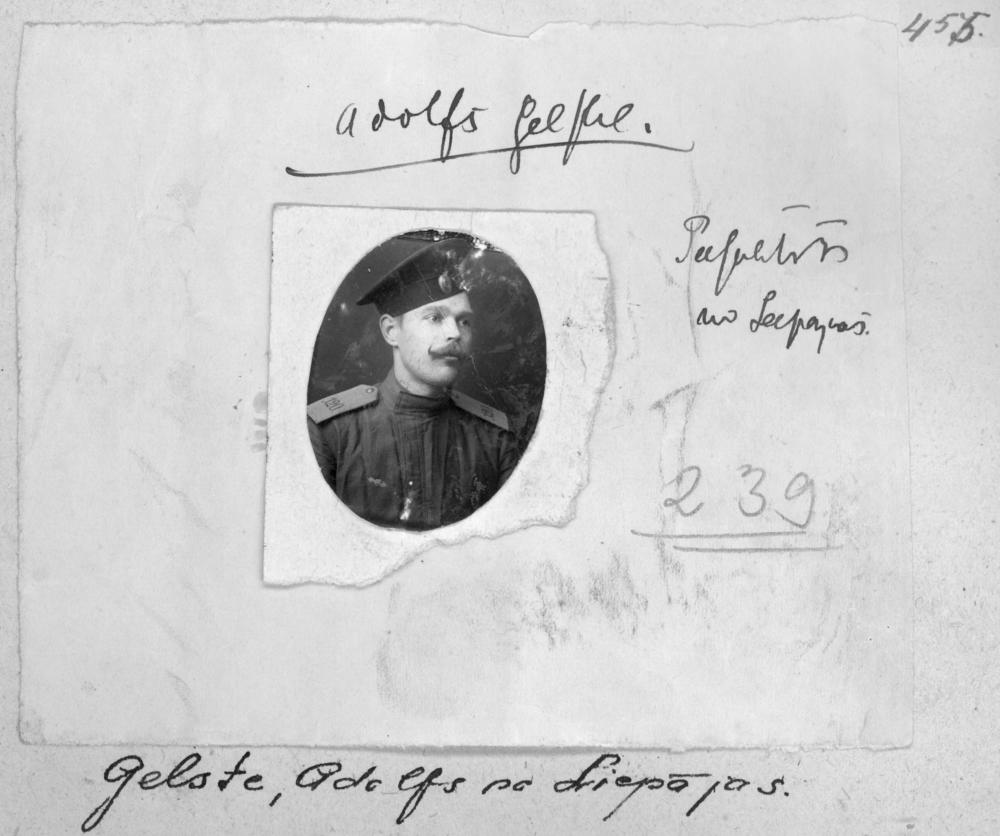 455.
Adolfs Gelste.
no Leepajas.
239
Gelste, Adolfs no Liepājas.